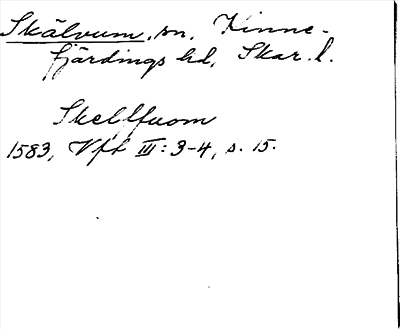 Skälvum, sn, Kinne-
fjärdings hd, Skar. l.
Skellfuom
1583, Vft III: 3-4, s. 15.